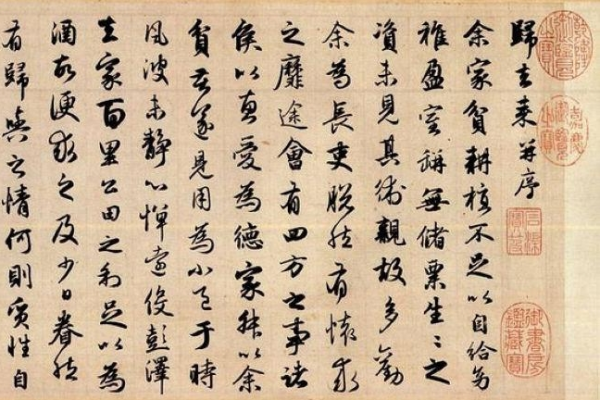 歸去來并序
余家貧耕植不足以自給幼
稚盈室缾無儲粟生〻之
資未見其術親故多勸
余為長吏脫然有懷求
之靡途會有四方之事諸
侯以惠愛為德家叔以余
貧苦遂見用為小邑于時
風波未靜心憚遠役彭澤
去家百里公田之利足以為
酒故便求之及少日眷然
有歸與之情何則質性自
乾隆御覽之寶
嘉慶御覽之寶
石渠寶笈
御書房鑑藏寶